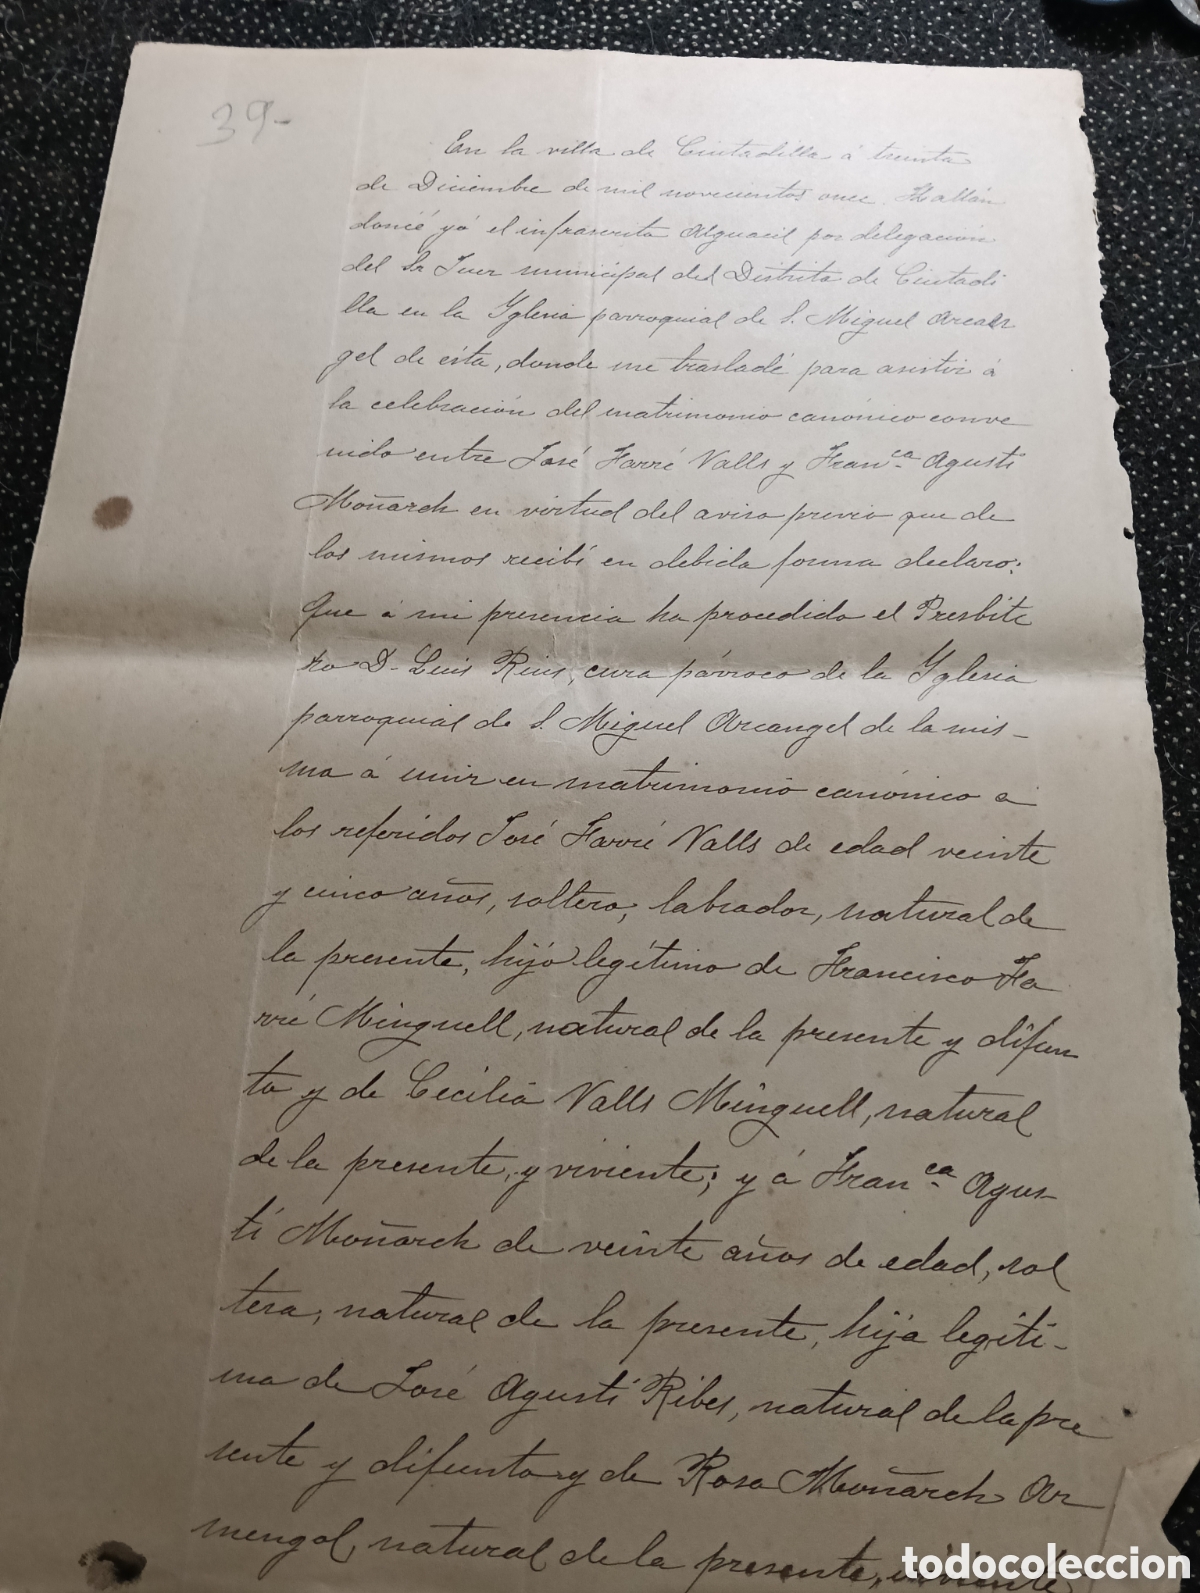 39-
En la villa de Ciutadilla á treinta
de Diciembre de mil novecientos once. Hallán
donié yó el infrascrito Alguacil por delegación
del Sr Juez municipal del Distrito de Ciutadi
lla en la Yglesia parroquial de S. Miguel Arcan
gel de ésta, donde me trasladé para asistir á
la celebración del matrimonio canónico conve
nido entre José Farré Valls y Fran.ca Agustí
Moñarch en virtud del aviso previo que de
los mismos recibí en debida forma declaro:
Que á mi presencia ha procedido el Presbíte
ro D- Luis Rius, cura párroco de la Yglesia
parroquial de S. Miguel Arcangel de la mis-
ma á unir en matrimonio canónico á
los referidos José Farré Valls de edad veinte
y cinco años, soltero, labrador, natural de
la presente, hijo legítimo de Francisco Fa
rré Minguell, natural de la presente y difun
to y de Cecilia Valls Minguell, natural
de la presente, y viviente; y á Fran.ca Agus-
tí Moñarch de veinte años de edad, sol
tera, natural de la presente, hija legíti-
ma de José Agustí Ribes, natural de la pre
sente y difunto y de Rosa Moñarch Ar
mengol, natural de la presente, viviente
todocoleccion